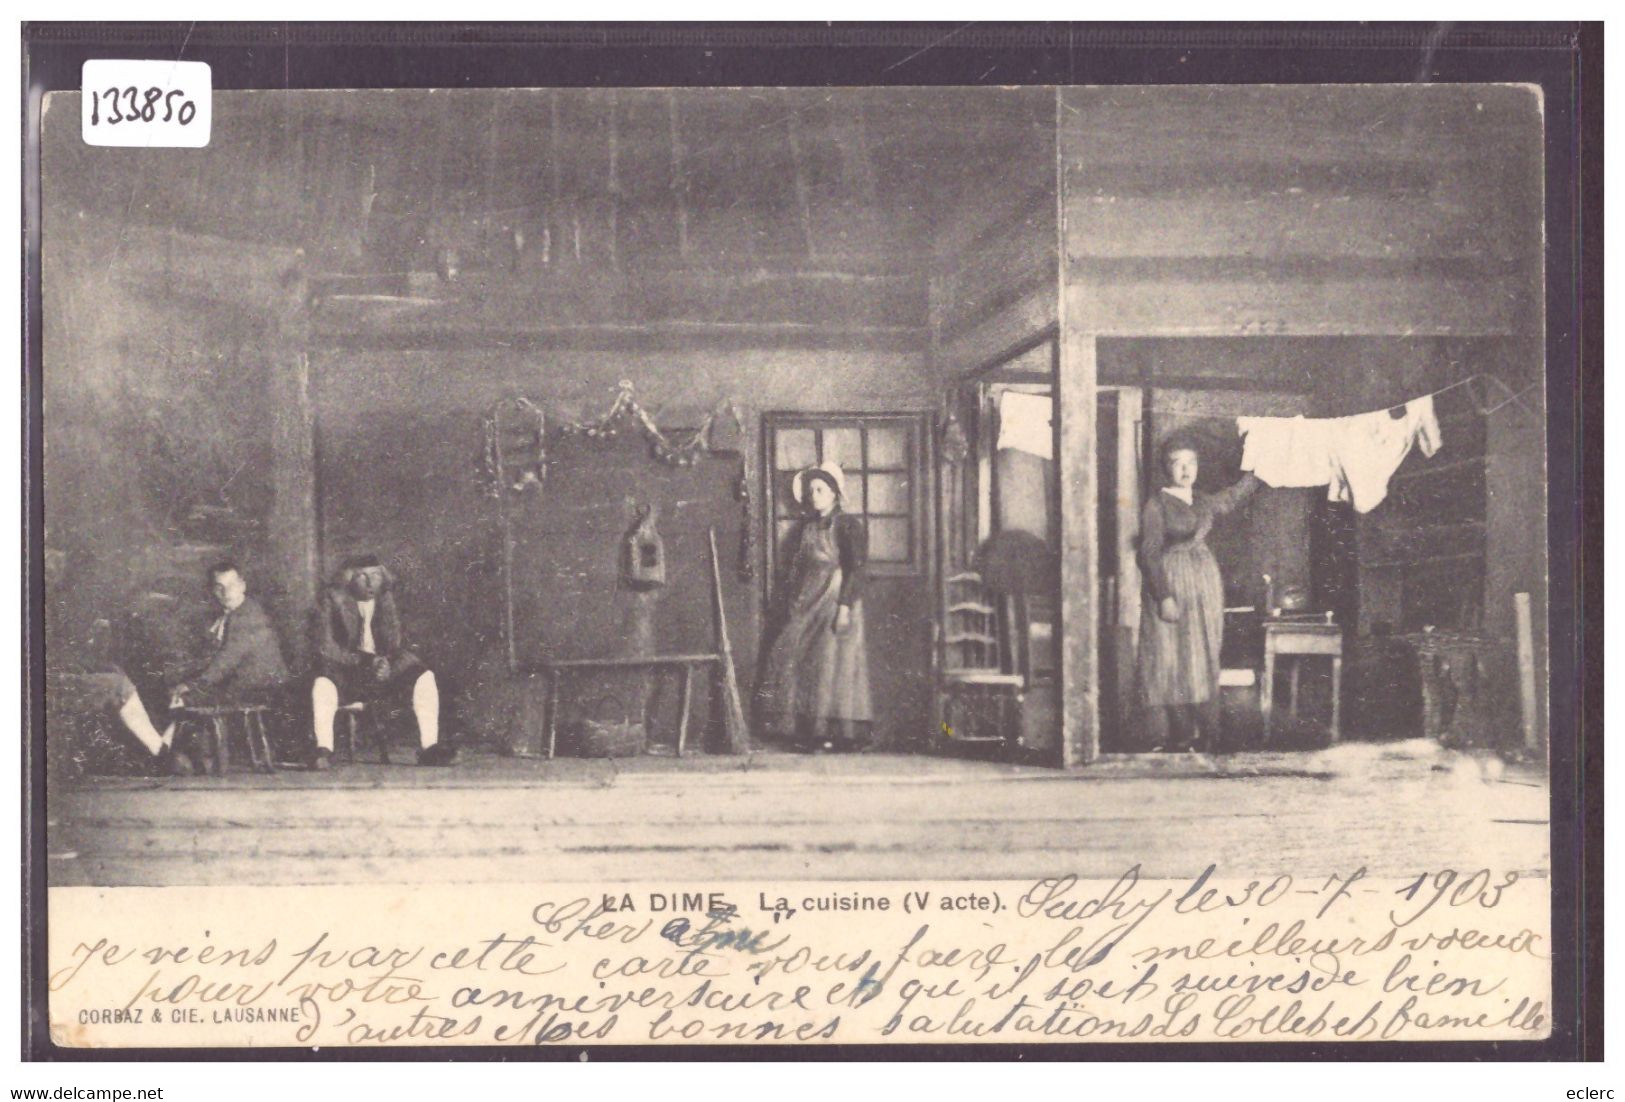 133850
LA DIME. La cuisine (V acte). Suchy le 30-7-1903
Cher ami
Je viens par cette carte vous faire les meilleurs voeux
pour votre anniversaire et qu'il soit suivis de bien
CORBAZ & CIE. LAUSANNE d'autres Mes bonnes salutations Ls Collet et famille
delcampe.net
eclerc